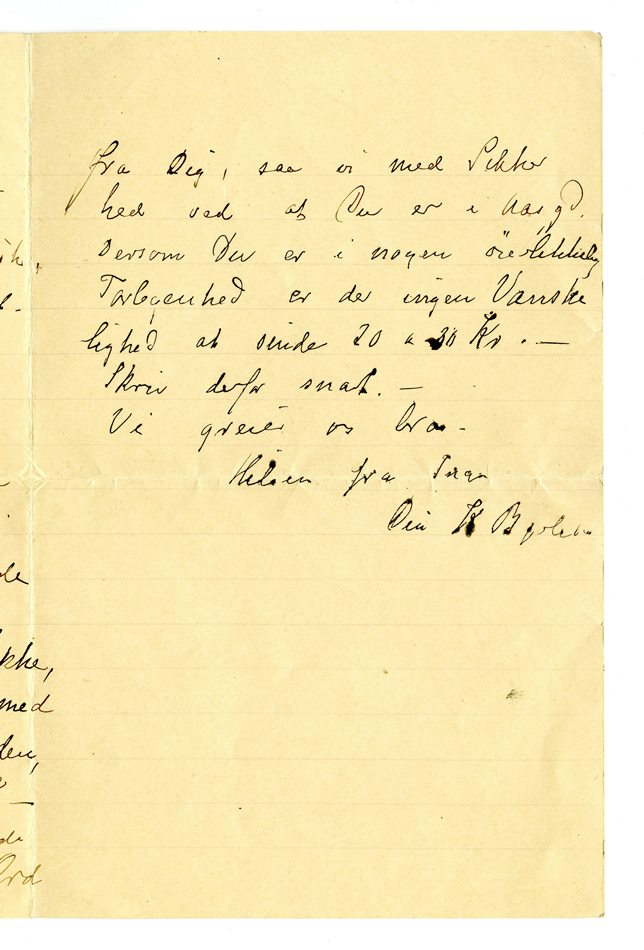 fra Dig, saa vi med Sikker
hed ved at Du er i
Dersom Du er i nogen öieblikkelig
Forlegenhed er der ingen Vanske
lighed at sende 20 a 30 Kr. —
Skriv derfor snart. —
Vi greier os bra.
Hilsen fra
Din K
kke,
med
den,
—
de
Ord